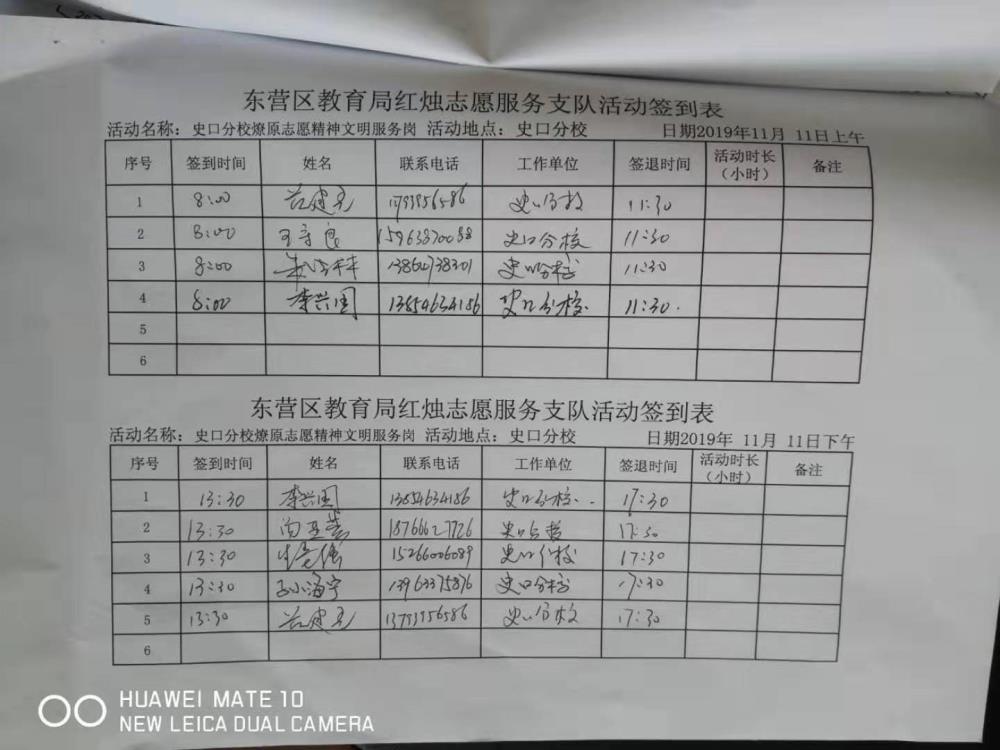 东营区教育局红烛志愿服务支队活动签到表
活动名称：史口分校燎原志愿精神文明服务岗 活动地点：史口分校 日期2019年11月 11日上午
序号 签到时间 姓名 联系电话 工作单位 签退时间 活动时长（小时） 备注
1 8:00 史口分校 11:30
2 8:00 王守良 15963870088 史口分校 11:30
3 8:00 史口分校 11:30
4 8:00 李兴国 13854634186 史口分校 11:30.
5
6
东营区教育局红烛志愿服务支队活动签到表
活动名称：史口分校燎原志愿精神文明服务岗 活动地点：史口分校 日期2019年 11月 11日下午
序号 签到时间 姓名 联系电话 工作单位 签退时间 活动时长（小时） 备注
1 13:30 李兴国 13854634186 史口分校 17:30
2 13:30 18766627726 17:30
3 13:30 15266006089 史口分校 17:30
4 13:30 孙小海宁 13963375876 史口分校 17:30
5 13:30 13793956586 史口分校 17:30
6
HUAWEI MATE 10
NEW LEICA DUAL CAMERA